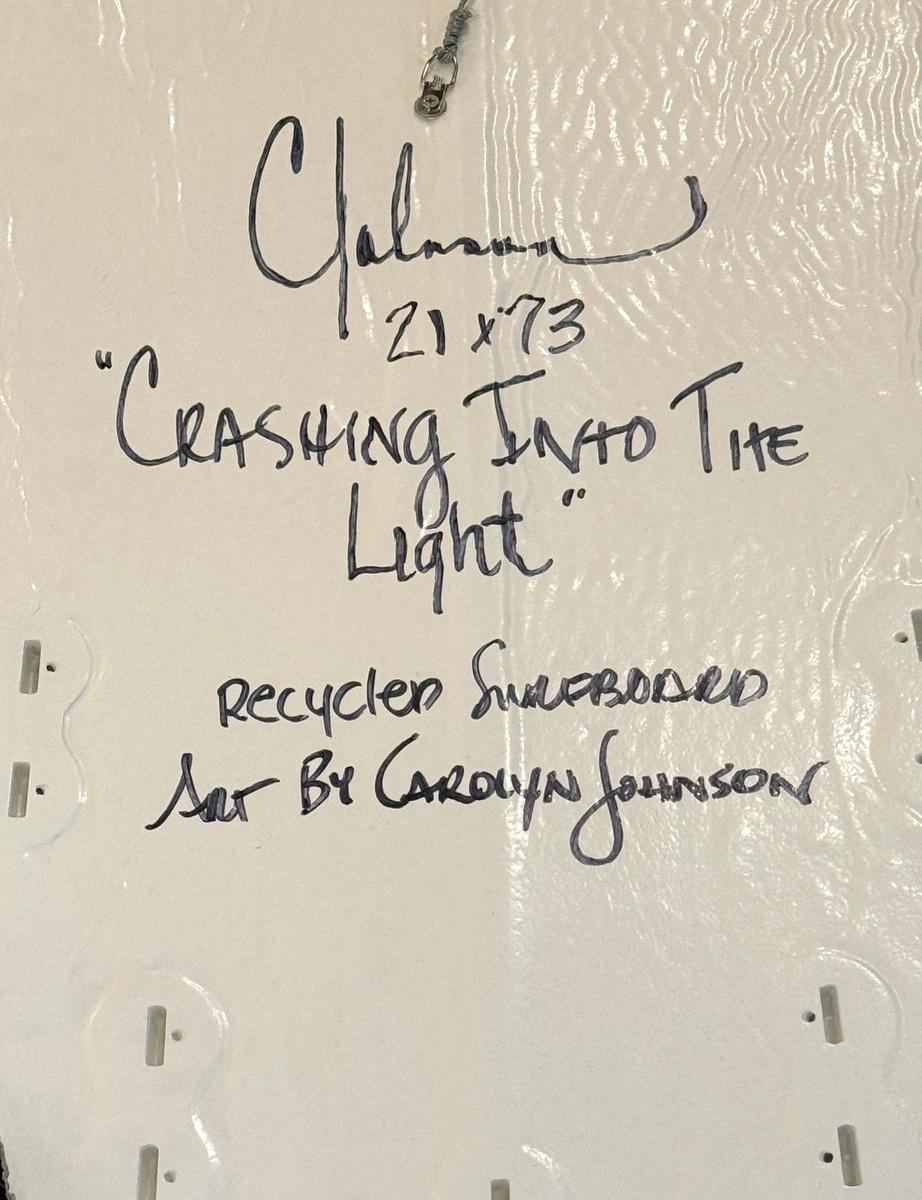 CJohnson
21 x 73
"CRASHING INTO THE
Light"
Recycled SURFBOARD
ART BY CAROLYN JOHNSON